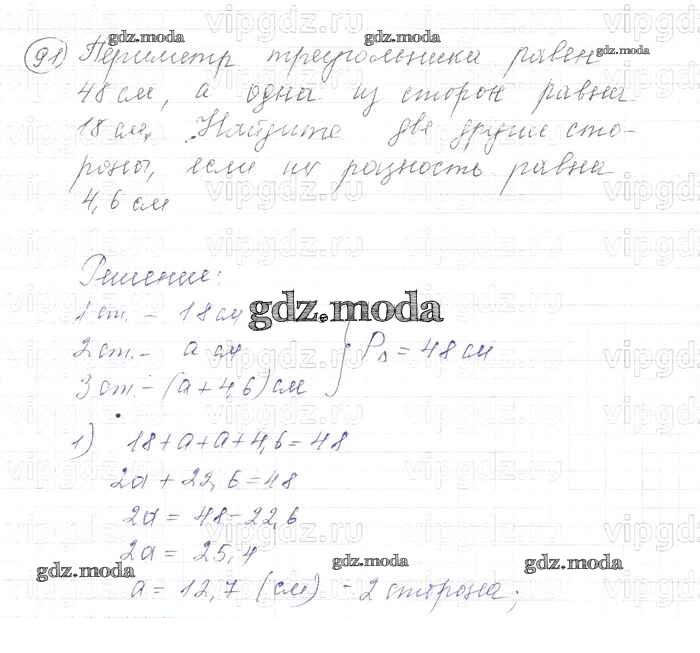 91) Периметр треугольника равен
48 см, а одна из сторон равна
18 см. Найдите две другие сто-
роны, если их разность равна
4,6 см
Решение:
1 ст. – 18 см
2 ст. – а см
3 ст – (а + 4,6) см
P△ = 48 см
1) 18 + а + а + 4,6 = 48
2а + 22,6 = 48
2а = 48 – 22,6
2а = 25,4
а = 12,7 (см) – 2 сторона;
gdz.moda
gdz.moda
gdz.moda
gdz.moda
gdz.moda
gdz.moda
gdz.moda
vipgdz.ru